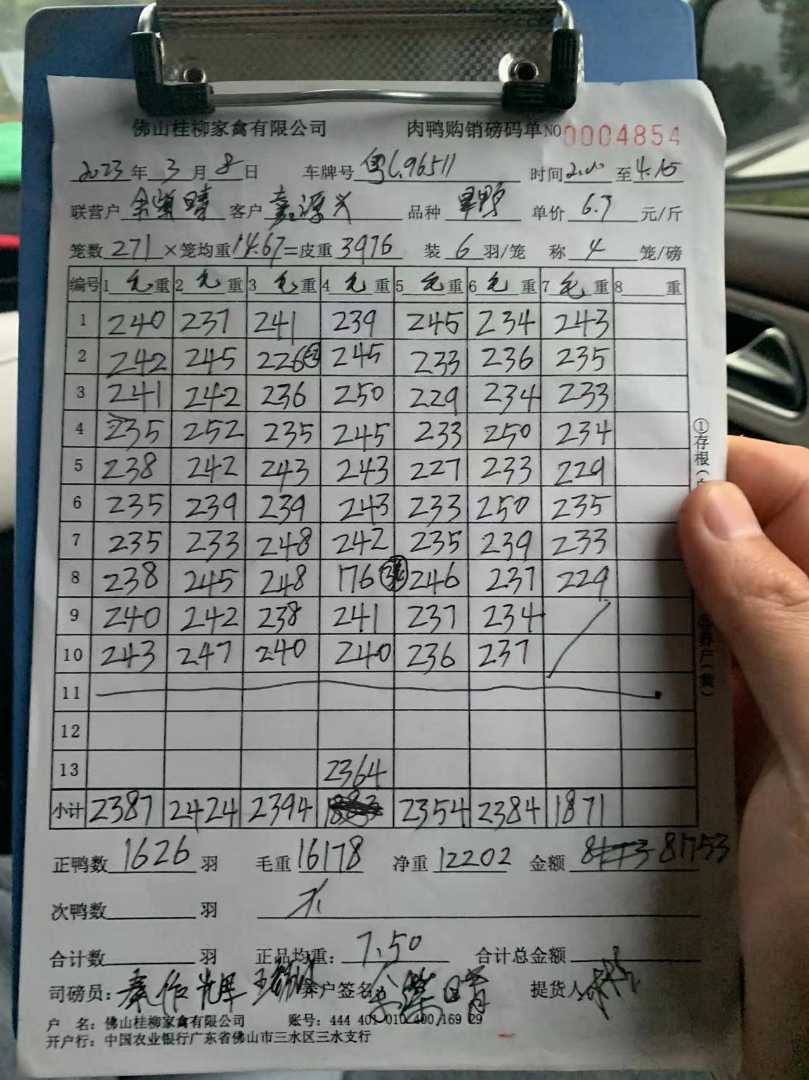 佛山桂柳家禽有限公司 肉鸭购销磅码单 NO 0004854
2023年3月8日 车牌号 粤L96511 时间 至4:15
联营户 客户 嘉源兴 品种 单价 6.7 元/斤
笼数 271 ×笼均重 14.67=皮重 3976 装 6 羽/笼 称 4 笼/磅
编号 1 毛 重 2 毛 重 3 毛 重 4 毛 重 5 毛 重 6 毛 重 7 毛 重 8 重
1 240 237 241 239 245 234 243
2 242 245 226③ 245 233 236 235
3 241 242 236 250 229 234 233
4 235 252 235 245 233 250 234
5 238 242 243 243 227 233 229
6 235 239 239 243 233 250 235
7 235 233 248 242 235 239 233
8 238 245 248 176 246 237 229
9 240 242 238 241 237 234
10 243 247 240 240 236 237
11
12
13 2364
小计 2387 2424 2394 2354 2384 1871
正鸭数 1626 羽 毛重 16178 净重 12202 金额 81753
次鸭数 羽
合计数 羽 正品均重: 7.50 合计总金额
司磅员: 秦作辉 养户签名 提货人
户 名: 佛山桂柳家禽有限公司 账号: 444 401 010 400 169 29
开户行: 中国农业银行广东省佛山市三水区三水支行
①存根(
养户(黄)